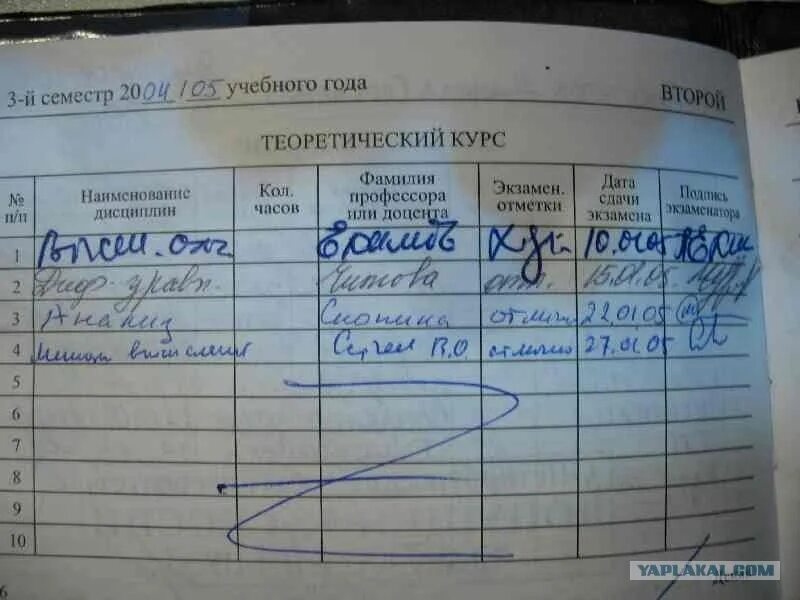 3-й семестр 2004/05 учебного года ВТОРОЙ
ТЕОРЕТИЧЕСКИЙ КУРС
№ п/п Наименование дисциплин Кол. часов Фамилия профессора или доцента Экзамен. отметки Дата сдачи экзамена Подпись экзаменатора
1 10.01.05
2 Диф. уравн. Читова отл. 15.01.05.
3 Анализ Скопина отлично 22.01.05
4 вычисления В.О. отлично 27.01.05
5
6
7
8
9
10
6
YAPLAKAL.COM